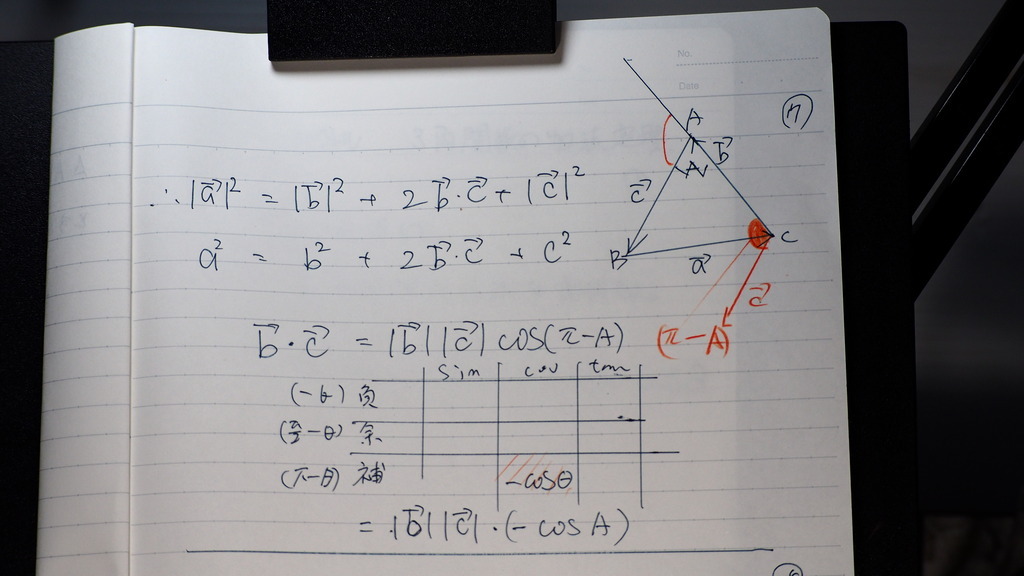 No.
Date
⑦
A
(A)
b⃗
c⃗
B
C
a⃗
c⃗
(π-A)
∴ |a⃗|² = |b⃗|² + 2b⃗·c⃗ + |c⃗|²
a² = b² + 2b⃗·c⃗ + c²
b⃗·c⃗ = |b⃗||c⃗| cos(π-A)
sin cos tan
(-θ) 負
(π/2-θ) 余
(π-θ) 補 -cosθ
= |b⃗||c⃗|·(-cos A)